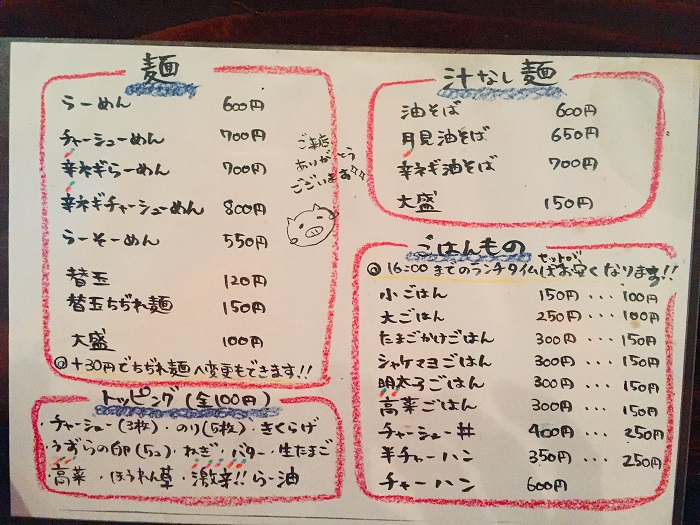 麺
らーめん 600円
チャーシューめん 700円
辛ネギらーめん 700円
辛ネギチャーシューめん 800円
らーそーめん 550円
替玉 120円
替玉ちぢれ麺 150円
大盛 100円
◎+30円でちぢれ麺へ変更もできます!!
ご来店
ありがとう
ございます
トッピング(全100円)
・チャーシュー(3枚)・のり(5枚)・きくらげ
・うずらの卵(5コ)・ねぎ・バター・生たまご
・高菜・ほうれん草・激辛!!らー油
汁なし麺
油そば 600円
月見油そば 650円
辛ネギ油そば 700円
大盛 150円
ごはんもの
◎16:00までのランチタイムはセットがお安くなります!!
小ごはん 150円・・・100円
大ごはん 250円・・・100円
たまごかけごはん 300円・・・150円
シャケマヨごはん 300円・・・150円
明太子ごはん 300円・・・150円
高菜ごはん 300円・・・150円
チャーシュー丼 400円・・・250円
半チャーハン 350円・・・250円
チャーハン 600円